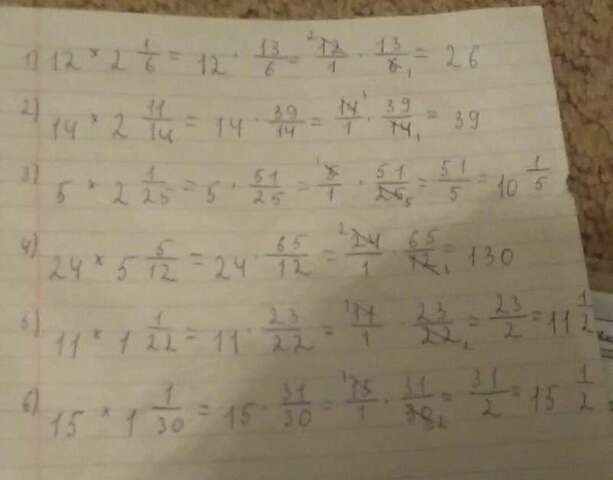 1) 12 × 2 1/6 = 12 · 13/6 = ²12/1 · 13/6₁ = 26
2) 14 × 2 11/14 = 14 · 39/14 = 14¹/1 · 39/14₁ = 39
3) 5 × 2 1/25 = 5 · 51/25 = ¹5/1 · 51/25₅ = 51/5 = 10 1/5
4) 24 × 5 5/12 = 24 · 65/12 = ²24/1 · 65/12₁ = 130
5) 11 × 1 1/22 = 11 · 23/22 = ¹11/1 · 23/22₂ = 23/2 = 11 1/2
6) 15 × 1 1/30 = 15 · 31/30 = ¹15/1 · 31/30₂ = 31/2 = 15 1/2